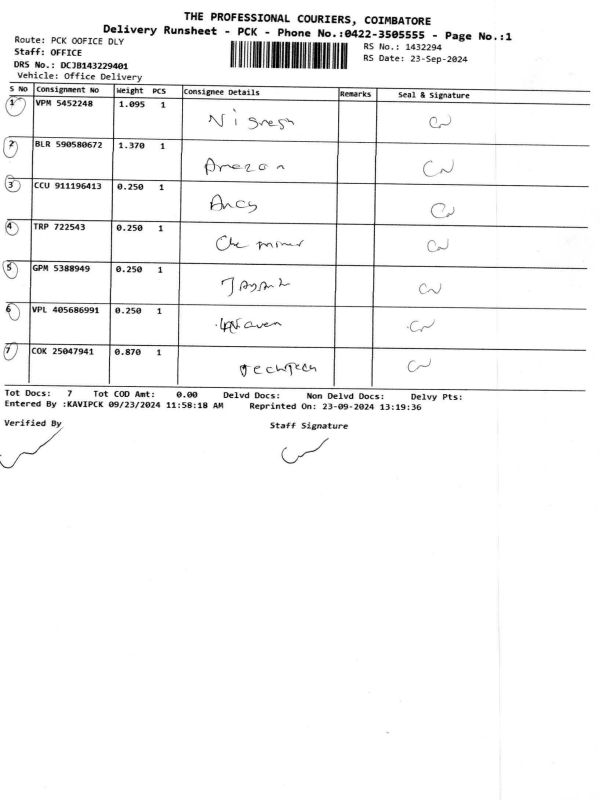 THE PROFESSIONAL COURIERS, COIMBATORE
Delivery Runsheet - PCK - Phone No.:0422-3505555 - Page No.:1
Route: PCK OOFICE DLY
RS No.: 1432294
Staff: OFFICE
RS Date: 23-Sep-2024
DRS No.: DCJB143229401
Vehicle: Office Delivery
S No Consignment No Weight PCS Consignee Details Remarks Seal & Signature
1 VPM 5452248 1.095 1
2 BLR 590580672 1.370 1 Amazon
3 CCU 911196413 0.250 1
4 TRP 722543 0.250 1
5 GPM 5388949 0.250 1
6 VPL 405686991 0.250 1
7 COK 25047941 0.870 1
Tot Docs: 7 Tot COD Amt: 0.00 Delvd Docs: Non Delvd Docs: Delvy Pts:
Entered By :KAVIPCK 09/23/2024 11:58:18 AM Reprinted On: 23-09-2024 13:19:36
Verified By Staff Signature